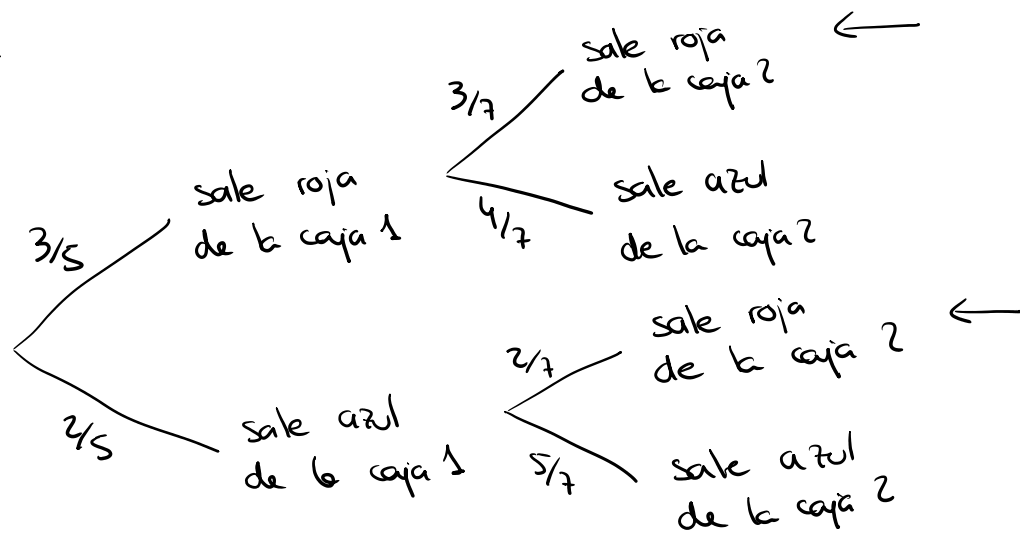 sale roja
de la caja 2
3/7
sale roja
de la caja 1
sale azul
de la caja 2
4/7
3/5
sale roja
de la caja 2
2/7
2/5
sale azul
de la caja 1
5/7
sale azul
de la caja 2